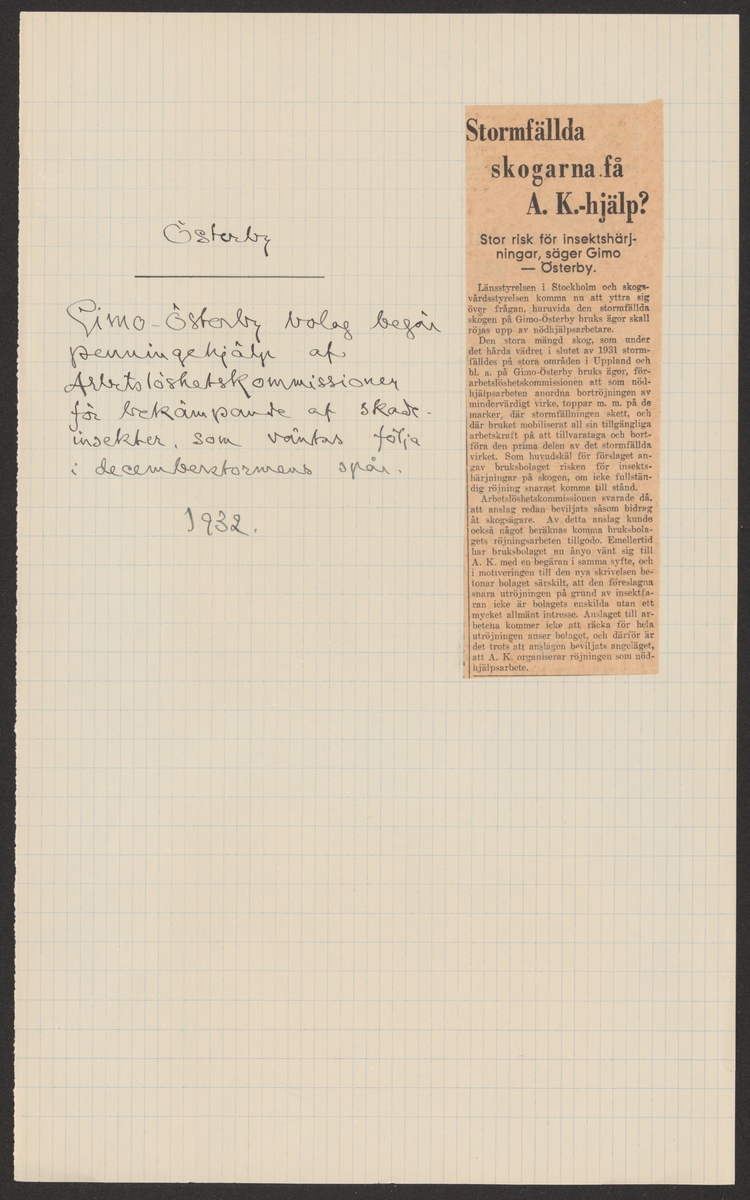 Österby
Gimo-Österby bolag begär
penningehjälp af
Arbetslöshetskommissionen
för bekämpande af skade-
insekter, som väntas följa
i decemberstormens spår.
1932.
Stormfällda
skogarna få
A. K.-hjälp?
Stor risk för insektshärj-
ningar, säger Gimo
— Österby.
Länsstyrelsen i Stockholm och skogs-
vårdsstyrelsen komma nu att yttra sig
över frågan, huruvida den stormfällda
skogen på Gimo-Österby bruks ägor skall
röjas upp av nödhjälpsarbetare.
Den stora mängd skog, som under
det hårda vädret i slutet av 1931 storm-
fälldes på stora områden i Uppland och
bl. a. på Gimo-Österby bruks ägor, för-
arbetslöshetskommissionen att som nöd-
hjälpsarbeten anordna bortröjningen av
mindervärdigt virke, toppar m. m. på de
marker, där stormfällningen skett, och
där bruket mobiliserat all sin tillgängliga
arbetskraft på att tillvarataga och bort-
föra den prima delen av det stormfällda
virket. Som huvudskäl för förslaget an-
gav bruksbolaget risken för insekts-
härjningar på skogen, om icke fullstän-
dig röjning snarast komme till stånd.
Arbetslöshetskommissionen svarade då,
att anslag redan beviljats såsom bidrag
åt skogsägare. Av detta anslag kunde
också något beräknas komma bruksbola-
gets röjningsarbeten tillgodo. Emellertid
har bruksbolaget nu ånyo vänt sig till
A. K. med en begäran i samma syfte, och
i motiveringen till den nya skrivelsen be-
tonar bolaget särskilt, att den föreslagna
snara utröjningen på grund av insektfa-
ran icke är bolagets enskilda utan ett
mycket allmänt intresse. Anslaget till ar-
betena kommer icke att räcka för hela
utröjningen anser bolaget, och därför är
det trots att anslagen beviljats angeläget,
att A. K. organiserar röjningen som nöd-
hjälpsarbete.